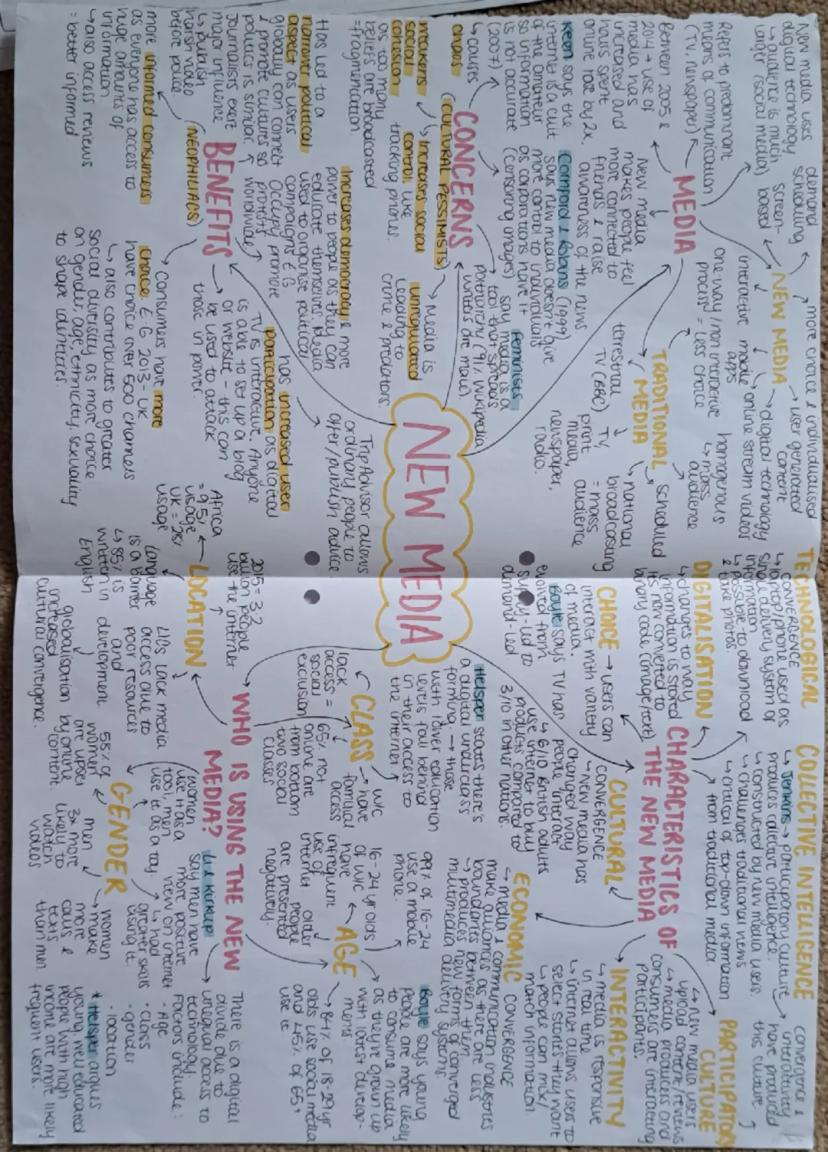 NEW MEDIA
MEDIA
Refers to predominant
means of communication
(TV, newspaper)
Between 2005 &
2014 → use of
media has
increased and
hours spent
online rose by 2x.
New media
makes people feel
more connected to
friends & raise
awareness of the news
NEW MEDIA
New media uses
digital technology
↳ audience is much
larger (social media)
demand
scheduling
screen-
based
more choice & individualised
→ user generated
content
→ digital technology
online stream videos
interactive mobile
apps
one-way/non interactive
process = less choice
TRADITIONAL
MEDIA
homogenous
↳ mass
audience
scheduled
national
broadcasting
= mass
audience
terrestrial
TV (BBC)
TV,
print
media,
newspaper,
radio.
CONCERNS
(CULTURAL PESSIMISTS)
Keen says the
internet is a cult
of the amateur
so information
is not accurate
(2007)
↳ causes
chaos
Cornford & Robins (1999)
says new media doesn't give
more control to individuals
as corporations have it
(censoring images)
Feminists
say media is a
tool that spreads
patriarchy (91% Wikipedia
writers are male)
→ Media is
unregulated
leading to
crime & predators.
↳ Increases social
control like
tracking phones.
Weakens
social
cohesion
as so many
beliefs are broadcasted
= fragmentation
BENEFITS
(NEOPHILIACS)
Has led to a
narrower political
aspect as users
globally can connect
& promote cultures so
politics is similar
worldwide
Journalists exert
major influence
↳ publish
harsh video
before police
more informed consumers
as everyone has access to
huge amounts of
information
↳ also access reviews
= better informed
Increases democracy & more
power to people as they can
educate themselves. Media
used to organise political
campaigns E.G
Occupy promote
protests
has increased user
participation as digital
TV is interactive. Anyone
is able to set up a blog
or website - this can
be used to attack
those in power.
TripAdvisor allows
ordinary people to
offer/publish advice
Consumers have more
choice E.G 2013 - UK
have choice over 500 channels
↳ also contributes to greater
social diversity as more choice
on gender, age, ethnicity, sexuality
to shape identities
CHARACTERISTICS OF
THE NEW MEDIA
TECHNOLOGICAL
CONVERGENCE
↳ laptop/phone used as
single delivery system of
information
↳ possible to download
& take photos
DIGITALISATION
↳ changes to way
information is stored
it's now converted to
binary code (image/text)
CHOICE → users can
interact with variety
of media.
Boyle says TV has
evolved from
supply-led to
demand-led
CULTURAL
CONVERGENCE
↳ New media has
changed way
people interact
↳ 6/10 British adults
use internet to buy
products compared to
3/10 in other nations.
ECONOMIC CONVERGENCE
→ media & communication industries
make alliances as there are less
boundaries between them
↳ produces new forms of converged
multimedia delivery systems
INTERACTIVITY
↳ media is responsive
in real time
↳ internet allows users to
select stories they want
↳ people can mix/
match information
PARTICIPATORY
CULTURE
↳ new media users
upload content/reviews
↳ media producers and
consumers are interacting
participants.
convergence &
interactivity
have produced
this culture
COLLECTIVE INTELLIGENCE
↳ Jenkins → participatory culture
produces collective intelligence.
↳ constructed by new media users.
↳ challenges traditional views
↳ critical of top-down information
from traditional media
WHO IS USING THE NEW
MEDIA?
2015 = 3.2
billion people
use the internet
There is a digital
divide due to
unequal access to
technology.
Factors include:
- Age
- class
- gender
- location
* Helsper argues
young well educated
people with high
income are more likely
frequent users.
CLASS
Helsper states there's
a digital underclass
forming → those
with lower education
levels fall behind
in their access to
the internet
W/C
have
familial
access
lack
access =
social
exclusion
65% not
online are
from bottom
two social
classes
AGE
16-24 yr olds
of W/C
have
infrequent
use of
internet
older
people
are presented
negatively.
99% of 16-24
use a mobile
phone.
Boyle says young
people are more likely
to consume media
as they're grown up
with latest develop-
ments
→ 84% of 18-29 yr
olds use social media
and 45% of 65+
use it
GENDER
Li & Kirkup
say men have
more positive
view on internet
↳ had
greater skills
using it
(women
use it as a
tool, men
use it as a toy
55% of
women
are upset
by online
content
men
3x more
likely to
watch
videos
women
make
more
calls &
texts
than men
LOCATION
Africa
= 9.5%
usage
usage
language
is a barrier
↳ 85% is
written in
English
LIDs lack media
access due to
poor resources
and
development
globalisation
increased
cultural convergence.